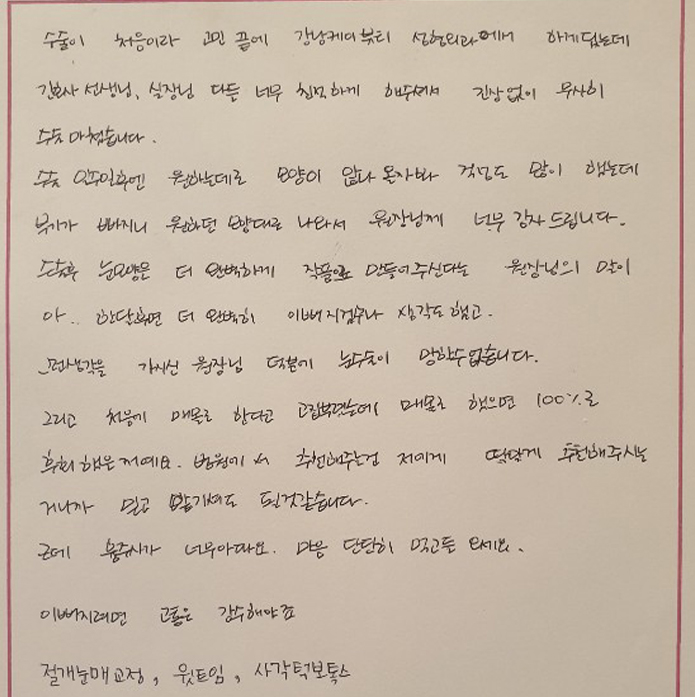 수술이 처음이라 고민 끝에 강남케이뷰티 성형외과에서 하게됬는데
간호사 선생님, 실장님 다들 너무 친절하게 해주셔서 진상없이 무사히
수술 마쳤습니다.
수술 일주일후엔 원하는데로 모양이 안나온자봐 걱정도 많이 했는데
부기가 빠지니 원하던 모양대로 나와서 원장님께 너무 감사드립니다.
수술후 눈모양을 더 완벽하게 작품으로 만들어주신다는 원장님의 말이
아.. 한달후면 더 완벽히 이뻐지겠구나 생각도했고.
그런생각을 가지신 원장님 덕분에 눈수술이 망할수없습니다.
그리고 처음에 매몰로 한다고 고집부렸는데 매몰로 했으면 100%로
후회 했을거예요. 병원에서 추천해주는건 저에게 딱맞게 추천해주시는
거니까 믿고 맡기셔도 될것같습니다.
근데 붓주사가 너무아파요. 마음 단단히 먹고들 오세요.
이뻐지려면 고통은 감수해야죠
절개눈매교정, 윗트임, 사각턱보톡스